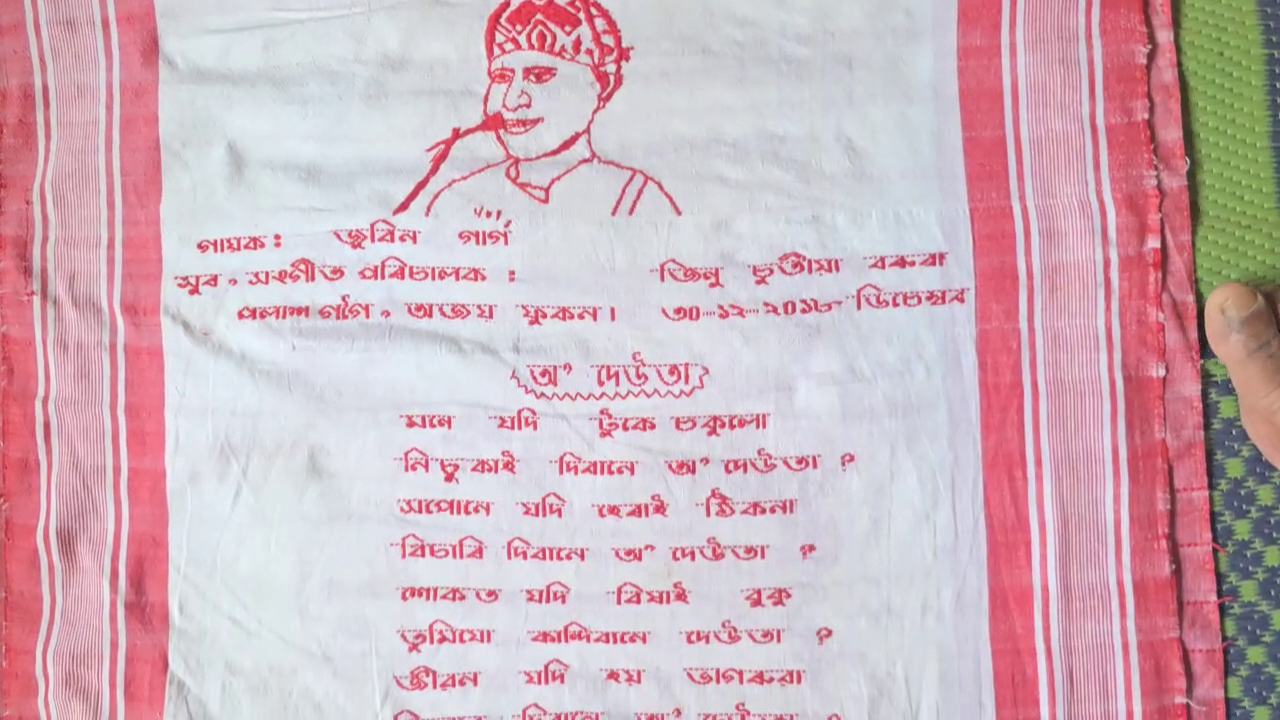 গায়ক : জুবিন গাৰ্গ
সুৰ, সংগীত পৰিচালক : জিনু চুতীয়া বৰুৱা
পলাশ গগৈ, অজয় ফুকন। ৩০-১২-২০১৮ ডিচেম্বৰ
অ' দেউতা
মনে যদি টুকে চকুলো
নিচুকাই দিবানে অ' দেউতা ?
সপোনে যদি হেৰাই ঠিকনা
বিচাৰি দিবানে অ' দেউতা ?
শোকত যদি বিষাই বুকু
তুমিযো কান্দিবানে দেউতা ?
জীৱন যদি হয় ভাগৰুৱা
দিবানে অ' দেউতা ?